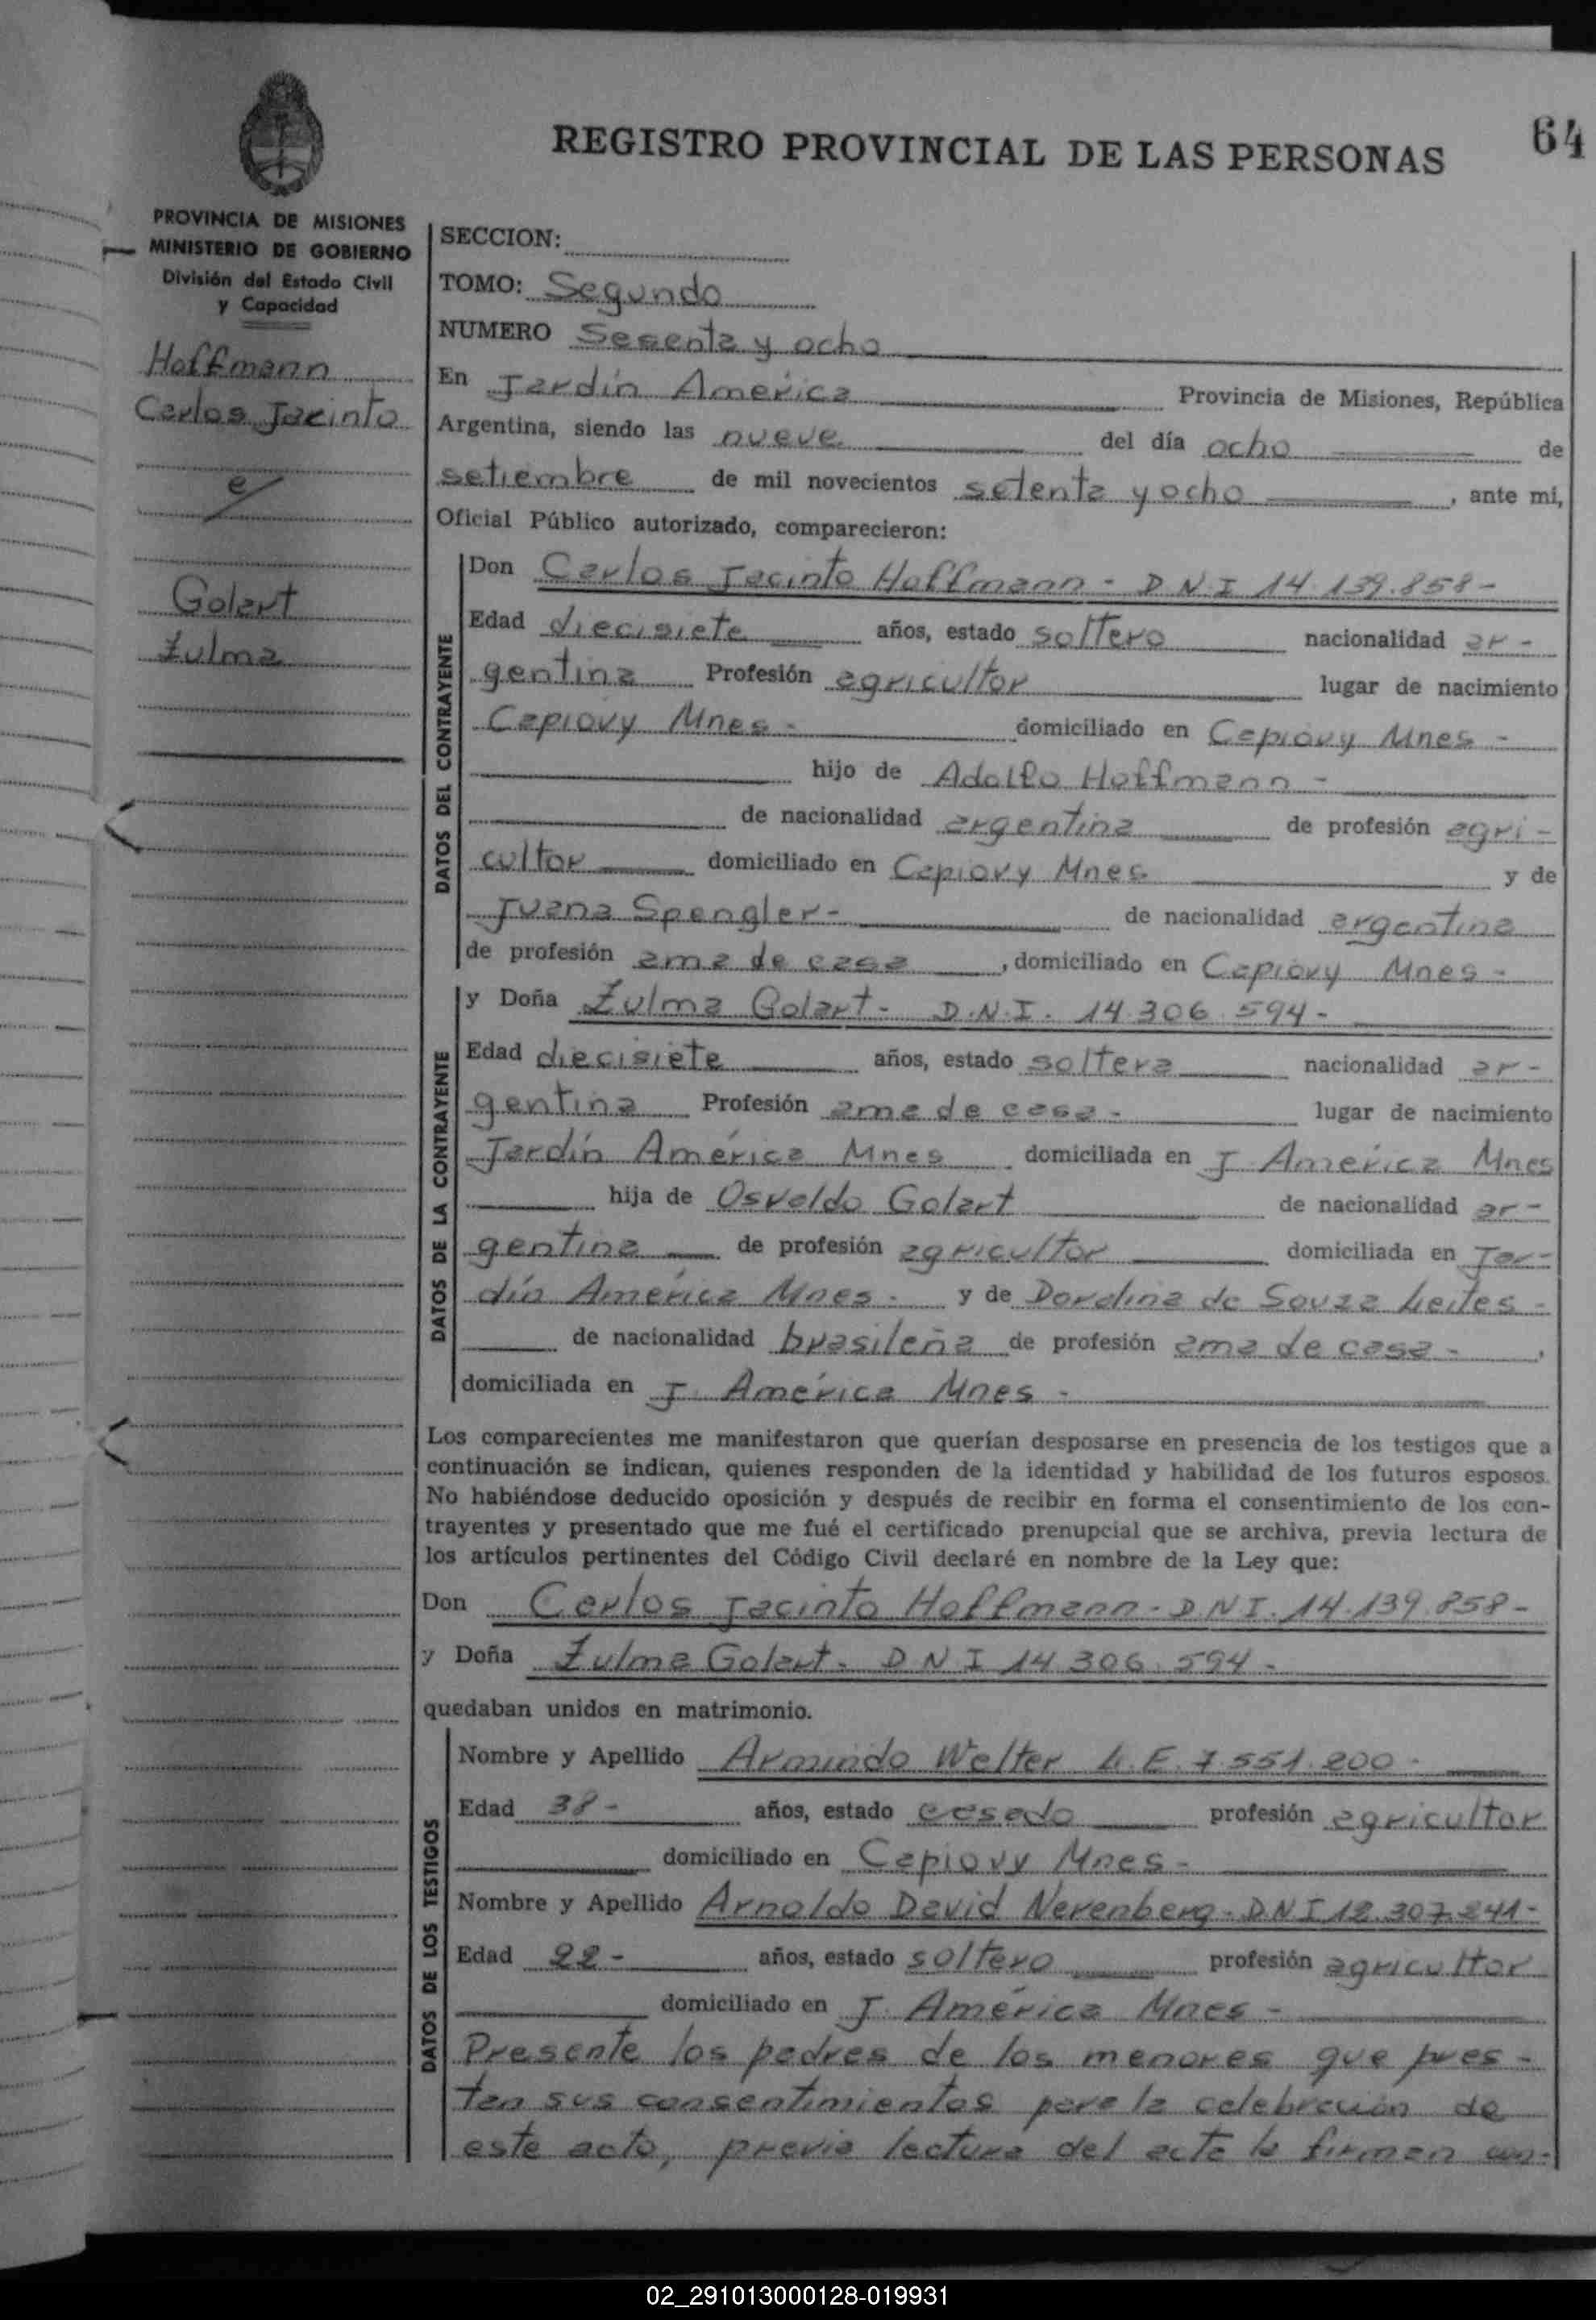 REGISTRO PROVINCIAL DE LAS PERSONAS
64
PROVINCIA DE MISIONES
MINISTERIO DE GOBIERNO
División del Estado Civil
y Capacidad
Hoffmann
Carlos Jacinto
e/
Golart
Zulma
SECCION:
TOMO: Segundo
NUMERO Sesenta y ocho
En Jardín América Provincia de Misiones, República
Argentina, siendo las nueve del día ocho de
setiembre de mil novecientos setenta y ocho , ante mí,
Oficial Público autorizado, comparecieron:
DATOS DEL CONTRAYENTE
Don Carlos Jacinto Hoffmann - D N I 14.139.858 -
Edad diecisiete años, estado soltero nacionalidad ar-
gentina Profesión agricultor lugar de nacimiento
Capiovy Mnes - domiciliado en Capiovy Mnes -
hijo de Adolfo Hoffmann -
de nacionalidad argentina de profesión agri-
cultor domiciliado en Capiovy Mnes y de
Juana Spengler - de nacionalidad argentina
de profesión ama de casa , domiciliado en Capiovy Mnes -
DATOS DE LA CONTRAYENTE
y Doña Zulma Golart - D.N.I. 14.306.594 -
Edad diecisiete años, estado soltera nacionalidad ar-
gentina Profesión ama de casa - lugar de nacimiento
Jardín América Mnes domiciliada en J. América Mnes
hija de Osvaldo Golart de nacionalidad ar-
gentina de profesión agricultor domiciliada en Jar-
dín América Mnes - y de Dordina de Souza Leites -
de nacionalidad brasileña de profesión ama de casa - ,
domiciliada en J. América Mnes -
Los comparecientes me manifestaron que querían desposarse en presencia de los testigos que a
continuación se indican, quienes responden de la identidad y habilidad de los futuros esposos.
No habiéndose deducido oposición y después de recibir en forma el consentimiento de los con-
trayentes y presentado que me fué el certificado prenupcial que se archiva, previa lectura de
los artículos pertinentes del Código Civil declaré en nombre de la Ley que:
Don Carlos Jacinto Hoffmann - D N I. 14.139.858 -
y Doña Zulma Golart - D N I 14 306.594 -
quedaban unidos en matrimonio.
DATOS DE LOS TESTIGOS
Nombre y Apellido Armindo Welter L.E. 7.551.200 -
Edad 38 - años, estado casado profesión agricultor
domiciliado en Capiovy Mnes -
Nombre y Apellido Arnoldo David Nerenberg - D N I 12.307.241 -
Edad 22 - años, estado soltero profesión agricultor
domiciliado en J. América Mnes -
Presente los padres de los menores que pres-
tan sus consentimientos para la celebración de
este acto, previa lectura del acta la firman con-
02_291013000128-019931